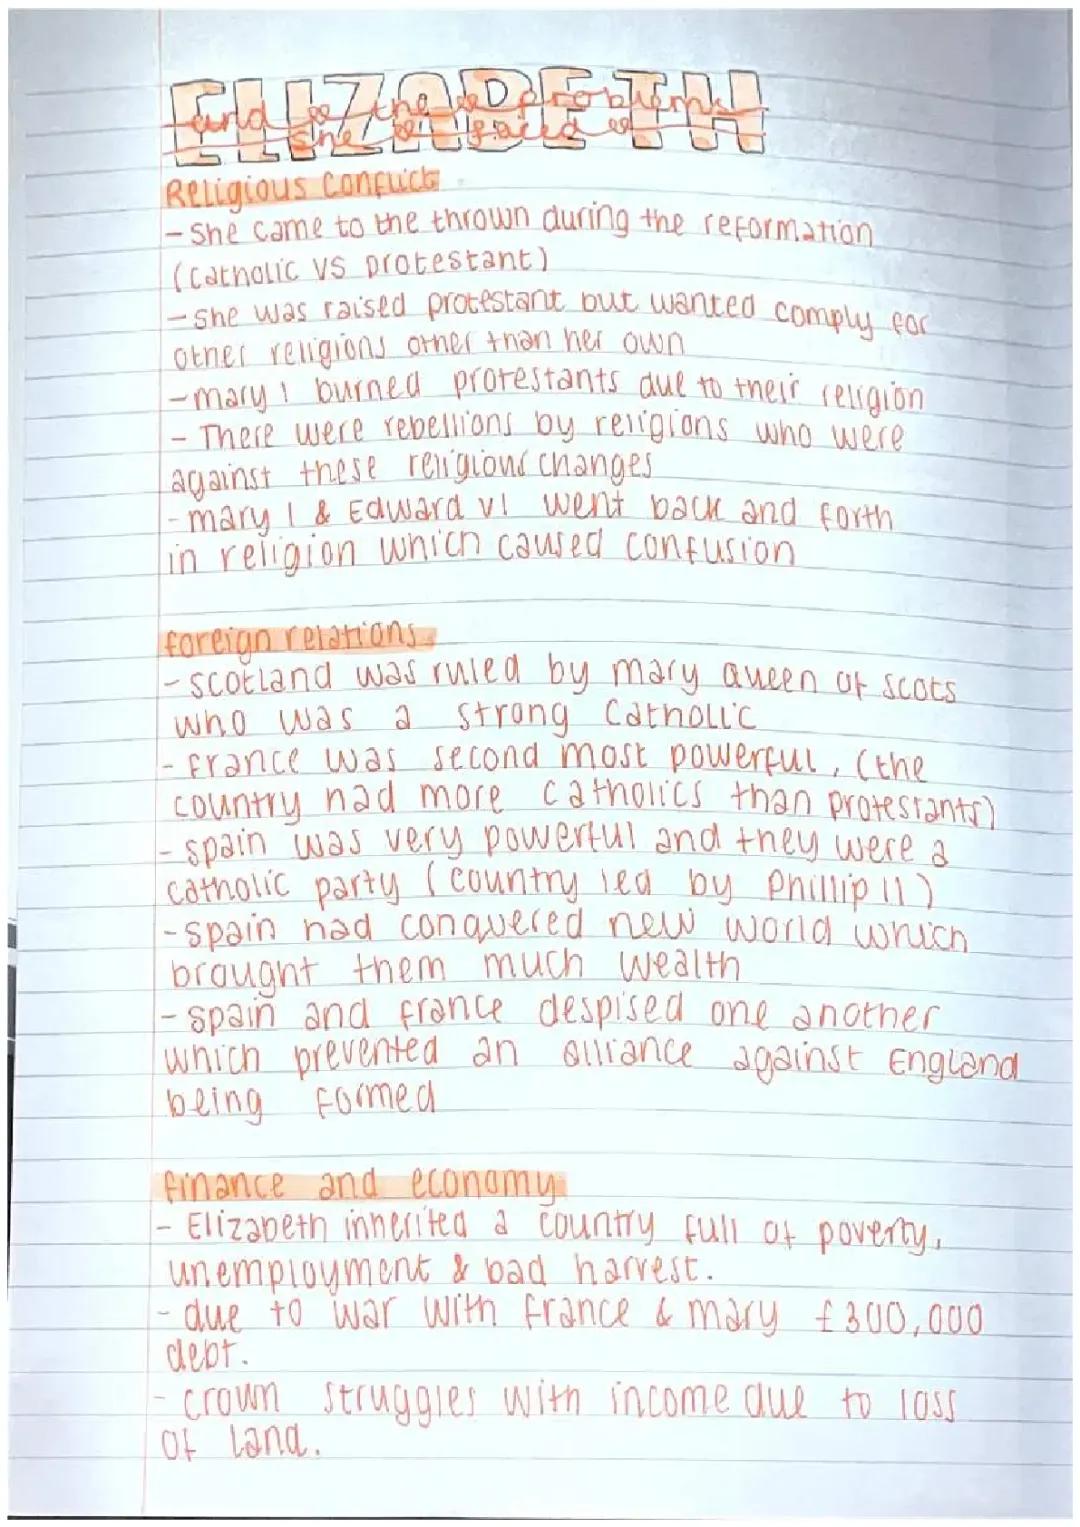 ELIZABETH
and the problems
she faced
Religious Conflict
- She came to the thrown during the reformation
(catholic VS protestant)
- she was raised protestant but wanted comply for
other religions other than her own
- mary I burned protestants due to their religion
- There were rebellions by religions who were
against these religious changes
- mary I & Edward VI went back and forth
in religion which caused confusion
foreign relations
- scotland was ruled by mary queen of scots
who was a strong catholic
- france was second most powerful, (the
country had more catholics than protestants)
- spain was very powerful and they were a
catholic party (country led by Phillip II)
- spain had conquered new world which
brought them much wealth
- spain and france despised one another
which prevented an alliance against England
being formed
finance and economy
- Elizabeth inherited a country full of poverty,
unemployment & bad harvest.
- due to war with france & mary £300,000
debt.
- crown struggles with income due to loss
of land.